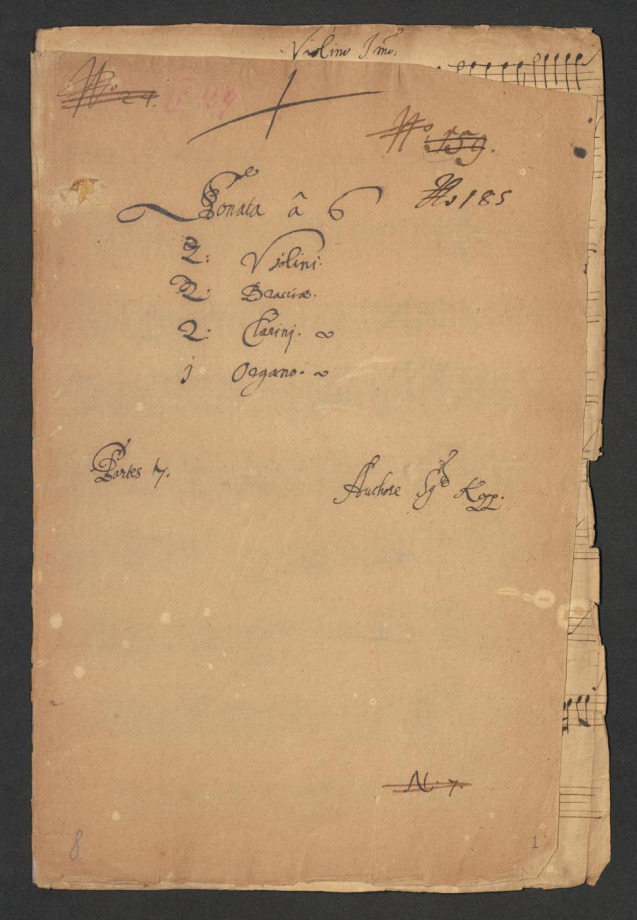 Violino I mo:
No 24.
No 159.
No 185
Sonata â 6
2: Violini.
2. Brasciæ.
2. Clarini.
1 Organo.
Partes 7.
Authore Sigre Kopp.
N. 7.
8
1